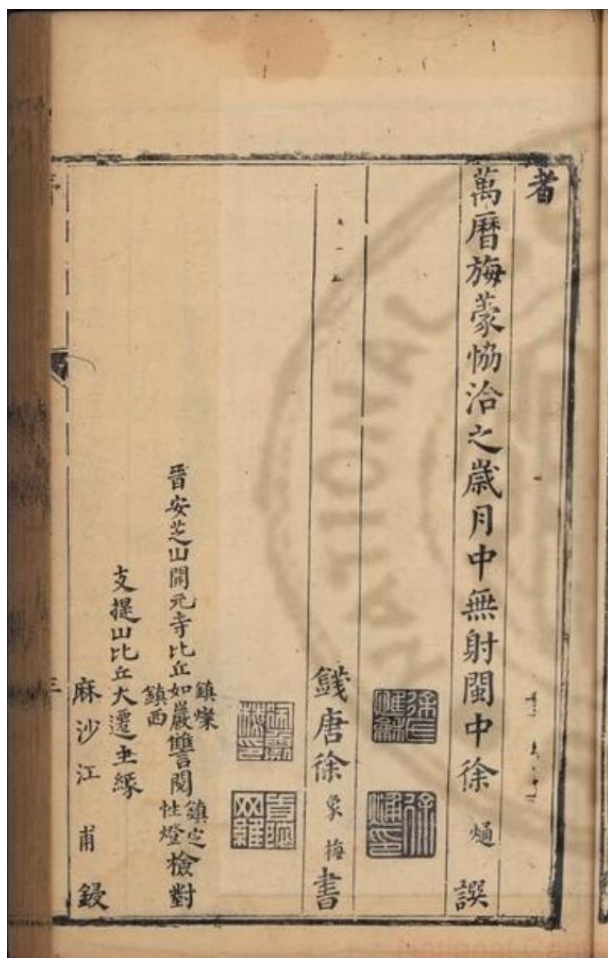 者
萬曆旃蒙恊洽之歲月中無射閩中徐熥譔
錢唐徐象梅書
晉安芝山開元寺比丘如巖讎閱
鎮燦
鎮西
鎮定
性燈
檢對
支提山比丘大遷主緣
麻沙江甫鋟